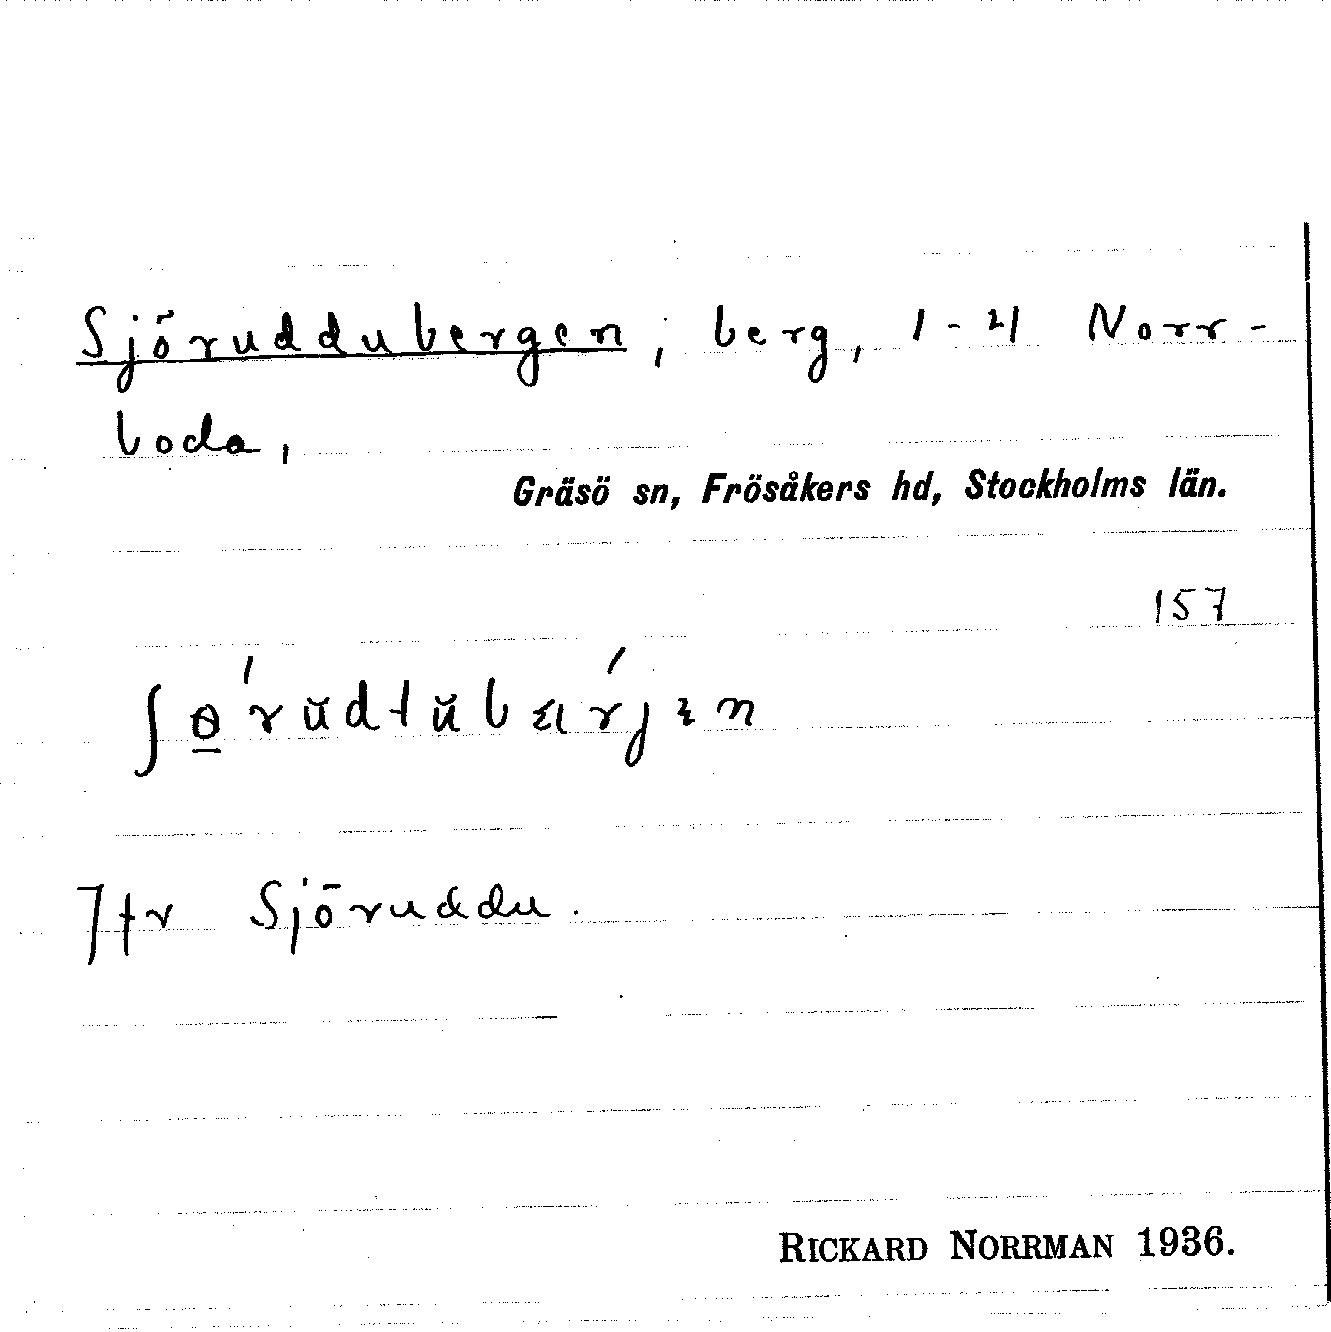 Sjöruddubergen, berg, 1-4 Norr-
boda,
Gräsö sn, Frösåkers hd, Stockholms län.
157
Jfr Sjöruddu.
RICKARD NORRMAN 1936.